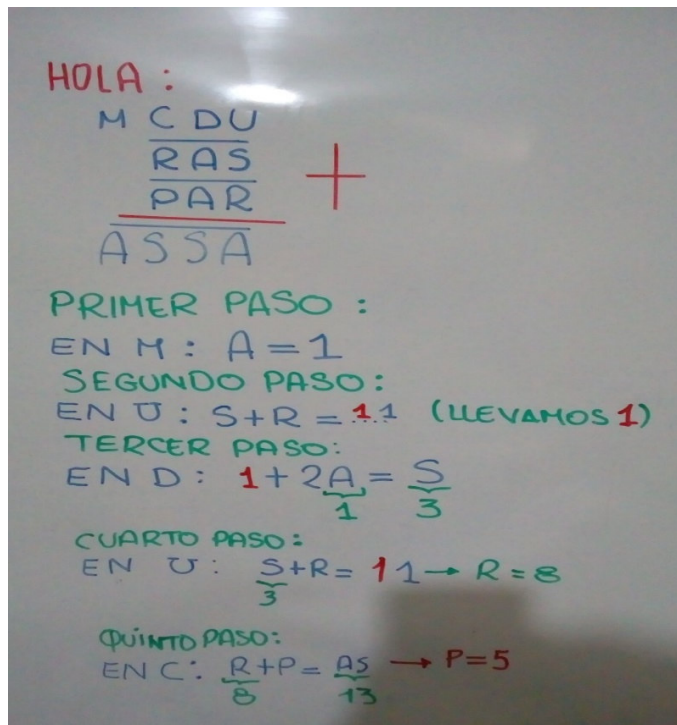 HOLA :
M C D U
R A S
P A R
+
A S S A
PRIMER PASO :
EN M : A = 1
SEGUNDO PASO:
EN U : S + R = 11 (LLEVAMOS 1)
TERCER PASO:
EN D : 1 + 2A = S
1 3
CUARTO PASO:
EN U : S + R = 11 → R = 8
3
QUINTO PASO:
EN C : R + P = AS → P = 5
8 13